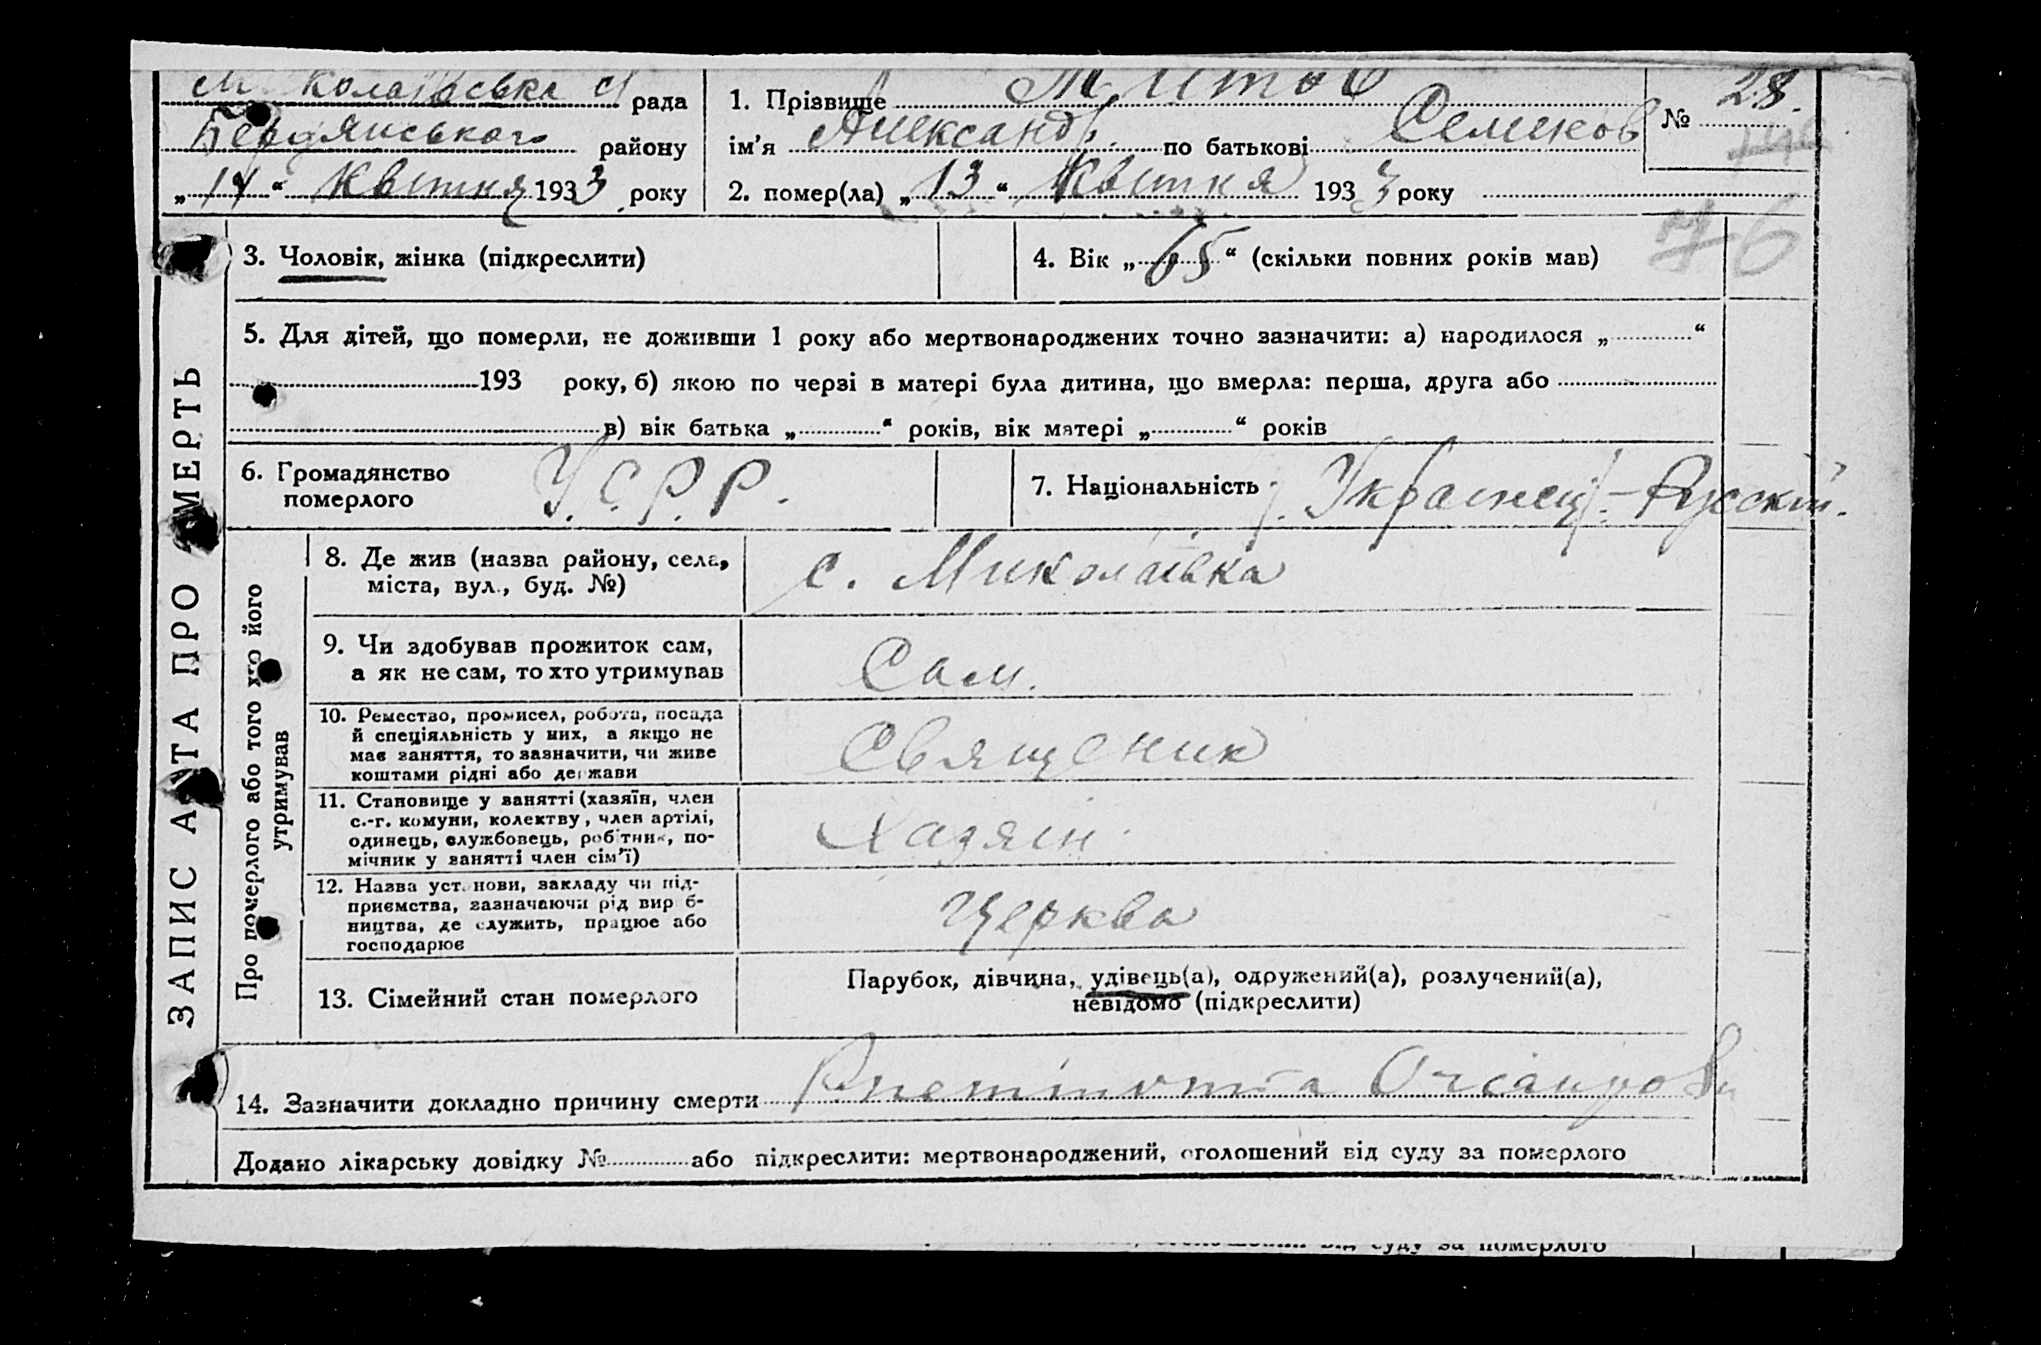 Миколаївська с рада
Бердянського району
„14“ Квітня 1933 року
1. Прізвище Титов
ім'я Александр. по батькові Семенов
2. помер(ла) „13“ Квітня 1933 року
№ 28.
76
ЗАПИС АКТА ПРО СМЕРТЬ
3. Чоловік, жінка (підкреслити)
4. Вік „65“ (скільки повних років мав)
5. Для дітей, що померли, не доживши 1 року або мертвонароджених точно зазначити: а) народилося „ “
193 року, б) якою по черзі в матері була дитина, що вмерла: перша, друга або
в) вік батька „ “ років, вік матері „ “ років
6. Громадянство
померлого
У.С.Р.Р.
7. Національність Украінец - Русскій.
Про померлого або того хто його
утримував
8. Де жив (назва району, села,
міста, вул., буд. №)
с. Миколаївка
9. Чи здобував прожиток сам,
а як не сам, то хто утримував
Сам.
10. Ремество, промисел, робота, посада
й спеціяльність у них, а якщо не
має заняття, то зазначити, чи живе
коштами рідні або держави
Священик
11. Становище у занятті (хазяїн, член
с.-г. комуни, колектву, член артілі,
одинець, службовець, робітник, по-
мічник у занятті член сім'ї)
Хазяїн
12. Назва установи, закладу чи під-
приємства, зазначаючи рід вироб-
ництва, де служить, працює або
господарює
Церква
13. Сімейний стан померлого
Парубок, дівчина, удівець(а), одружений(а), розлучений(а),
невідомо (підкреслити)
14. Зазначити докладно причину смерти
Додано лікарську довідку № або підкреслити: мертвонароджений, оголошений від суду за померлого
від суду за померлого